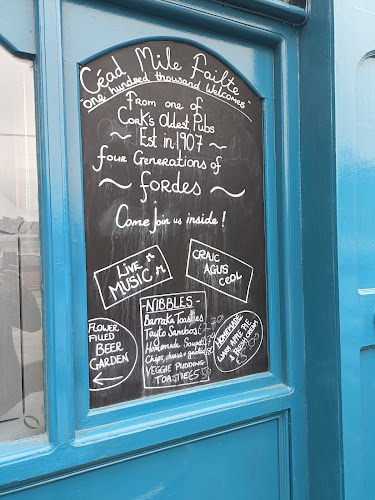 Céad Mile Failte
"one hundred thousand Welcomes"
From one of
Cork's Oldest Pubs
~ Est in 1907 ~
four Generations of
~ fordes ~
Come join us inside!
LIVE
MUSIC
CRAIC
AGUS
CEOL
FLOWER
FILLED
BEER
GARDEN
- NIBBLES -
Toasties
Tayto Sambos
Homemade Soup
Chips, cheese & garlic
VEGGIE PUDDING
TOASTIE
HOMEMADE
WARM APPLE PIE
& FRESH CREAM